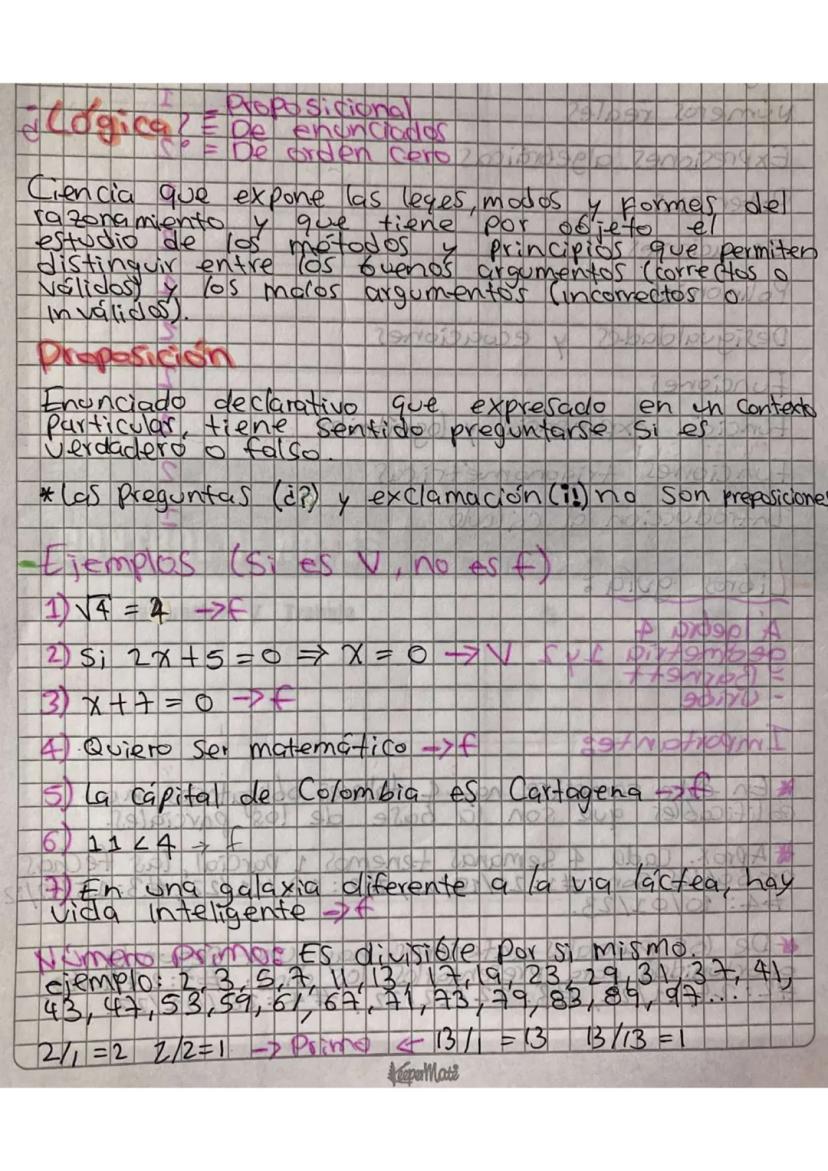 ¿Lógica? = Proposicional
= De enunciados
= De orden cero
Ciencia que expone las leyes, modos y formes del
razonamiento y que tiene por objeto el
estudio de los métodos y principios que permiten
distinguir entre los buenos argumentos (correctos o
válidos) y los malos argumentos (incorrectos o
inválidos).
Proposición
Enunciado declarativo que expresado en un contexto
particular, tiene sentido preguntarse si es
verdadero o falso.
* Las preguntas (¿?) y exclamación (¡!) no son preposicione
- Ejemplos (Si es V, no es f)
1) √4 = 4 → f
2) Si 2x + 5 = 0 ⇒ x = 0 → V
3) x + 7 = 0 → f
4) Quiero ser matemático → f
5) La cápital de Colombia es Cartagena → f
6) 11 < 4 → f
7) En una galaxia diferente a la via láctea, hay
vida inteligente → f
Número primo: Es divisible por si mismo.
ejemplo: 2, 3, 5, 7, 11, 13, 17, 19, 23, 29, 31, 37, 41,
43, 47, 53, 59, 61, 67, 71, 73, 79, 83, 89, 97...
2/1 = 2 2/2 = 1 → Primo ← 13/1 = 13 13/13 = 1
KeeperMate